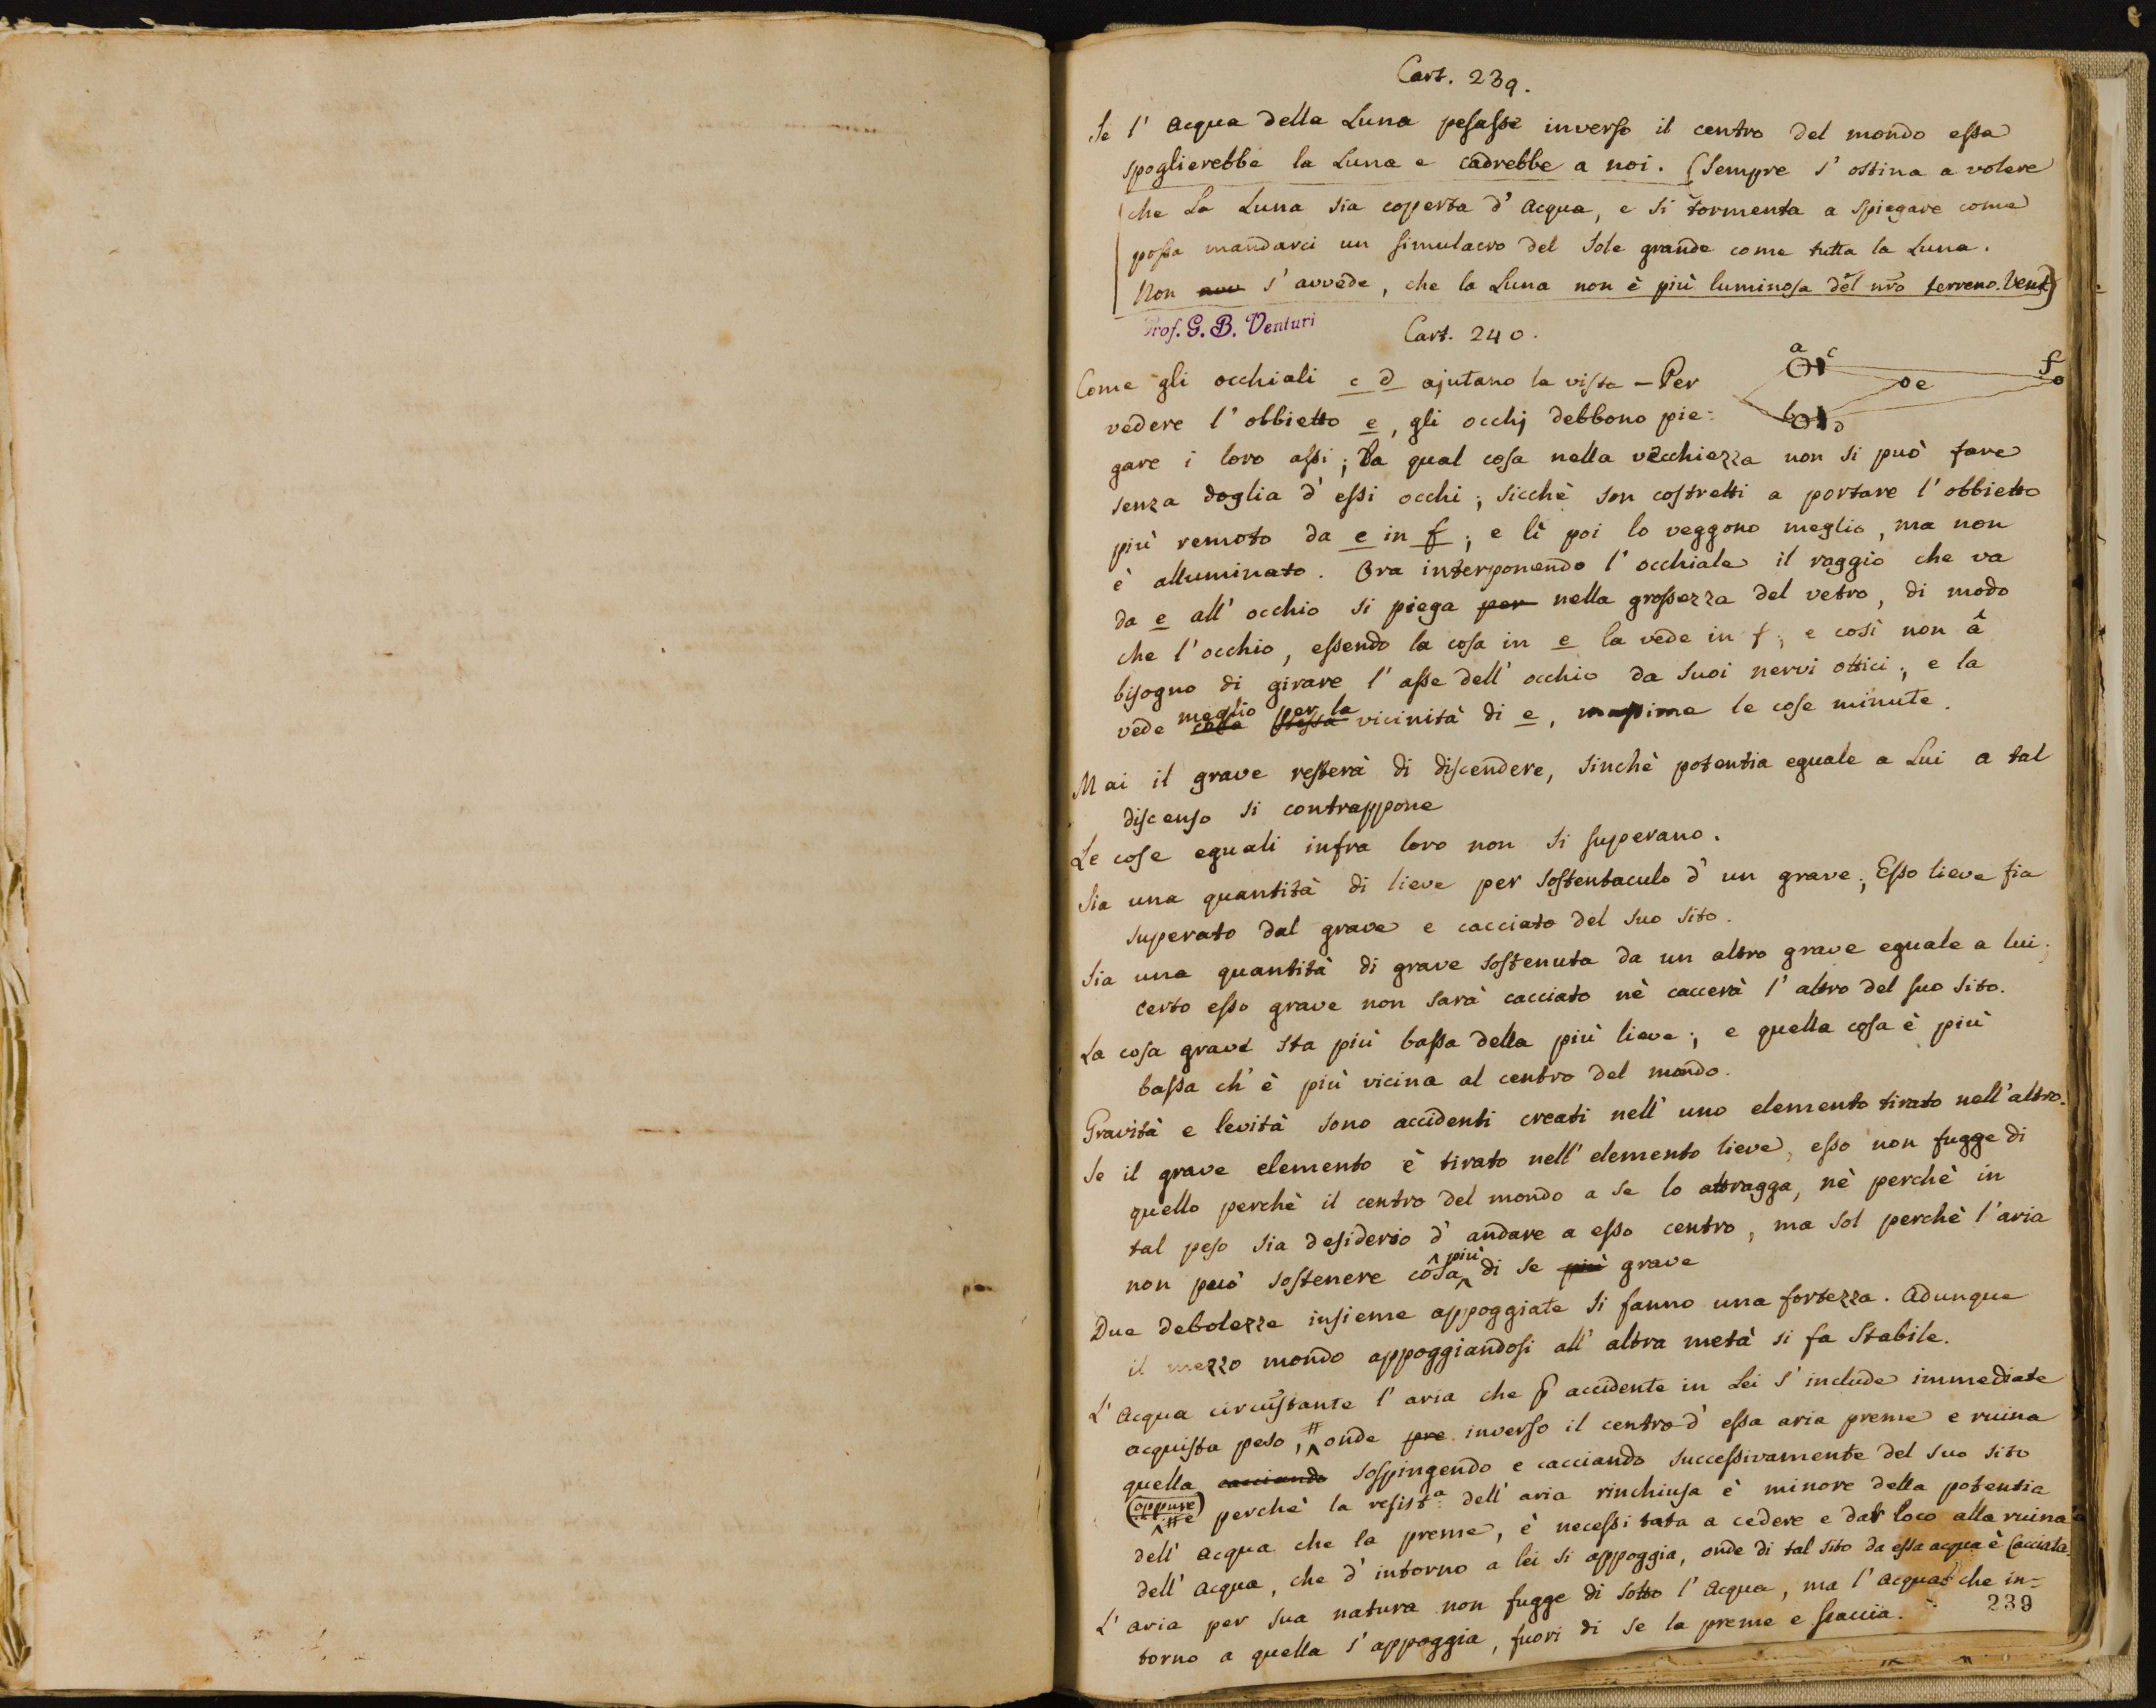 Cart. 239.
Se l' Acqua della Luna pesasse inverso il centro del mondo essa
spoglierebbe la Luna e cadrebbe a noi. (Sempre s' ostina a volere
che La Luna sia coperta d' Acqua, e si tormenta a spiegare come
possa mandarci un simulacro del Sole grande come tutta la Luna.
Non avv s' avvede, che la Luna non è più luminosa del nr̃o terreno. Vent)
Prof. G. B. Venturi
Cart. 240.
a c f
o e
b d
Come gli occhiali c d ajutano la vista – Per
vedere l' obbietto e, gli occhj debbono pie-
gare i loro assi; La qual cosa nella vecchiezza non si può fare
senza doglia d' essi occhi; sicchè son costretti a portare l' obbietto
più remoto da e in f; e lì poi lo veggono meglio, ma non
è alluminato. Ora interponendo l' occhiale il raggio che va
da e all' occhio si piega per nella grossezza del vetro, di modo
che l' occhio, essendo la cosa in e la vede in f; e così non â
bisogno di girare l' asse dell' occhio da suoi nervi ottici; e la
vede cosa stessa meglio per la vicinità di e, massime le cose minute.
Mai il grave resterà di discendere, sinchè potentia eguale a Lui a tal
discenso si contrappone
Le cose eguali infra loro non si superano.
Sia una quantità di lieve per sostentaculo d' un grave; Esso lieve fia
superato dal grave e cacciato del suo sito.
Sia una quantità di grave sostenuta da un altro grave eguale a lui;
certo esso grave non sarà cacciato nè caccerà l' altro del suo sito.
La cosa grave sta più bassa della più lieve; e quella cosa è più
bassa ch' è più vicina al centro del mondo.
Gravità e levità sono accidenti creati nell' uno elemento tirato nell' altro.
Se il grave elemento è tirato nell' elemento lieve, esso non fugge di
quello perchè il centro del mondo a se lo attragga, nè perchè in
tal peso sia desiderio d' andare a esso centro, ma sol perchè l' aria
non può sostenere cosa più di se più grave
Due debolezze insieme appoggiate si fanno una fortezza. Adunque
il mezzo mondo appoggiandosi all' altra metà si fa Stabile.
L' Acqua circustante l' aria che p̃ accidente in Lei s' include immediate
acquista peso, # onde pre inverso il centro d' essa aria preme e ruina
quella cacciando sospingendo e cacciando successivamente del suo sito
(oppure) # e perchè la resist.a dell' aria rinchiusa è minore della potentia
dell' Acqua che la preme, è necessitata a cedere e dar loco alla ruina
dell' Acqua, che d' intorno a lei si appoggia, onde di tal sito da essa acqua è cacciata.
L' aria per sua natura non fugge di sotto l' Acqua, ma l' acqua che in-
torno a quella s' appoggia, fuori di se la preme e scaccia.
239